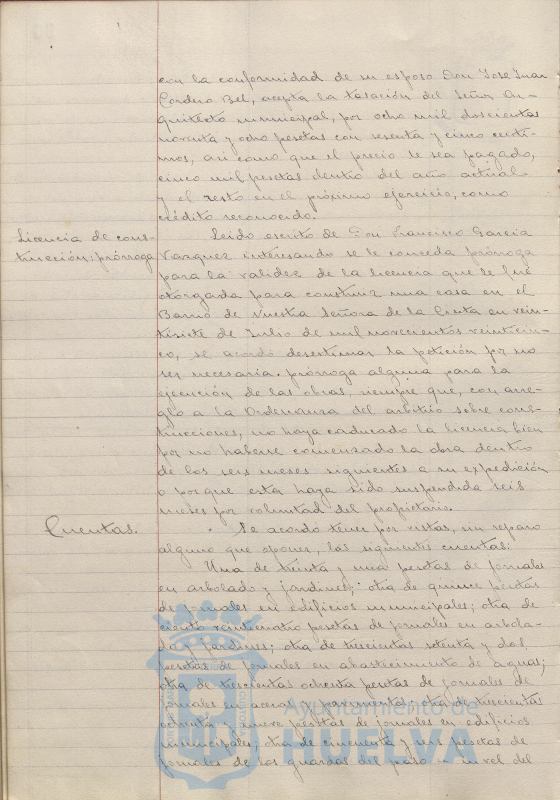 con la conformidad de su esposo Don Jose Juan
Cordero Bel, acepta la tasación del Señor Ar-
quitecto municipal, por ocho mil doscientas
noventa y ocho pesetas con sesenta y cinco centi-
mos, asi como que el precio le sea pagado,
cinco mil pesetas dentro del año actual
y el resto en el próximo ejercicio, como
crédito reconocido.
Licencia de cons-
trucción; prórroga
Leido escrito de Don Francisco Garcia
Vazquez interesando se le conceda prórroga
para la validez de la licencia que le fué
otorgada para construir una casa en el
Barrio de Nuestra Señora de la Cinta en vein-
tisiete de Julio de mil novecientos veinticin-
co, se acordó desestimar la petición por no
ser necesaria prórroga alguna para la
ejecución de las obras, siempre que, con arre-
glo a la Ordenanza del arbitrio sobre cons-
trucciones, no haya caducado la licencia bien
por no haberse comenzado la obra dentro
de los seis meses siguientes a su expedición
o porque esta haya sido suspendida seis
meses por voluntad del propietario.
Cuentas.
Se acordó tener por vistas, sin reparo
alguno que oponer, las siguientes cuentas:
Una de treinta y una pesetas de jornales
en arbolado y jardines; otra de quince pesetas
de jornales en edificios municipales; otra de
ciento veinticuatro pesetas de jornales en arbola-
do y jardines; otra de trescientas setenta y dos
pesetas de jornales en abastecimiento de aguas;
otra de trescientas ochenta pesetas de jornales de
jornales en aceras y pavimentos; otra de trescientas
ochenta y nueve pesetas de jornales en edificios
municipales; otra de cincuenta y seis pesetas de
jornales de los guardas del paso a nivel del
Ayuntamiento de
HUELVA